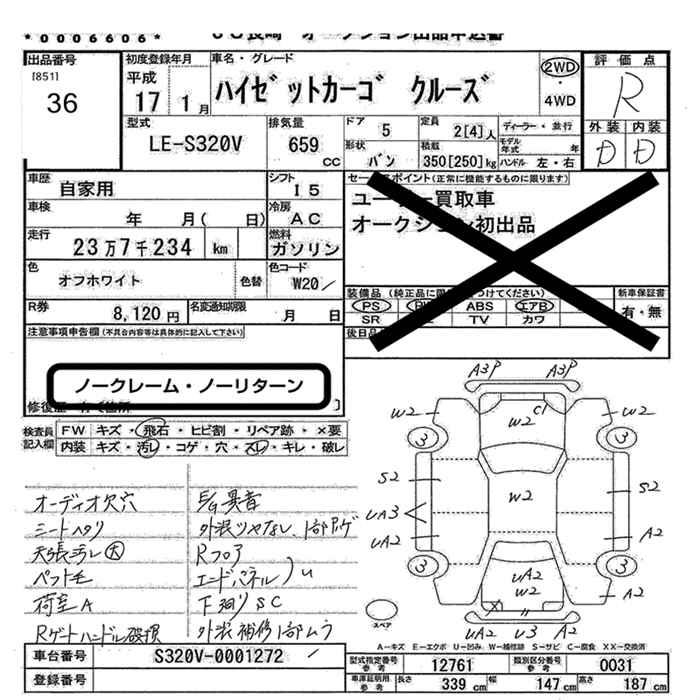 *0006606*
出品番号
[851]
36
初度登録年月
平成
17 1 月
車名・グレード
ハイゼットカーゴ クルーズ
2WD
4WD
評価点
R
外装 内装
D D
型式
LE-S320V
排気量
659
CC
ドア
5
定員
2[4]人
ディーラー・並行
モデル年式 年
形状
バン
積載
350[250]kg
ハンドル 左・右
車歴
自家用
シフト
I5
車検
年 月( 日)
冷房
AC
走行
23万7千234 km
燃料
ガソリン
色
オフホワイト
色替
色コード
W20
R券
8,120 円
名変通知期限
月 日
セールスポイント(正常に機能するものに限ります)
ユーザー買取車
オークション初出品
装備品
PS
ABS
エアB
SR
TV
カワ
新車保証書
有・無
後日品
注意事項申告欄(不具合内容等は具体的に記入して下さい)
ノークレーム・ノーリターン
検査員記入欄
FW キズ・飛石・ヒビ割・リペア跡・×要
内装 キズ・汚レ・コゲ・穴・スレ・キレ・破レ
オーディオ欠穴
シートヘタリ
天張汚レ大
ペット毛
荷室A
Rゲートハンドル破損
E/G異音
外装ツヤなし、1部ハゲ
Rフロア
エンドパネル U
下廻りSC
外装補修1部ムラ
A3P A3P
W2 C1 W2
W2
3 3
S2 W2 S2
UA3
UA2 A2
3 3
UA2
W2 A2
UA2 U3 A2
スペア
A－キズ E－エクボ U－凹み W－補修跡 S－サビ C－腐食 XX－交換済
車台番号
S320V-0001272
登録番号
型式指定番号 参考
12761
類別区分番号 参考
0031
車庫証明用 参考
長さ 339 cm
幅 147 cm
高さ 187 cm